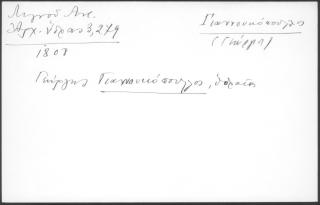 Λιγνού Αντ.
Ἀρχ. Ὕδρας 3, 279
1808
Γιαννουκόπουλος
(Γιώργης)
Γιώργης Γιαννουκόπουλος, ὑδραῖος